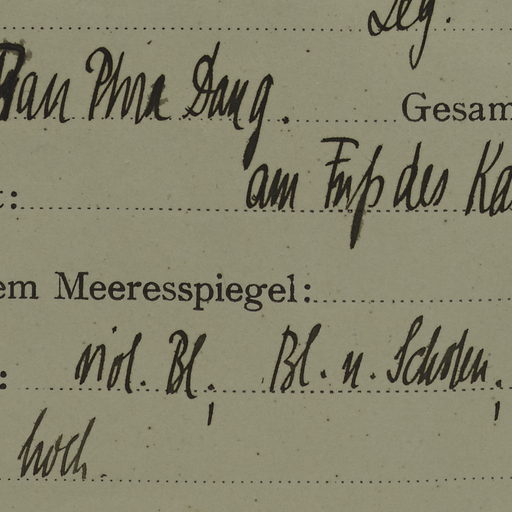 Leg.
Ban Phra Dang. Gesam
: am Fuß des Ka
em Meeresspiegel:
: viol. Bl; Bl. u. Schoten;
hoch